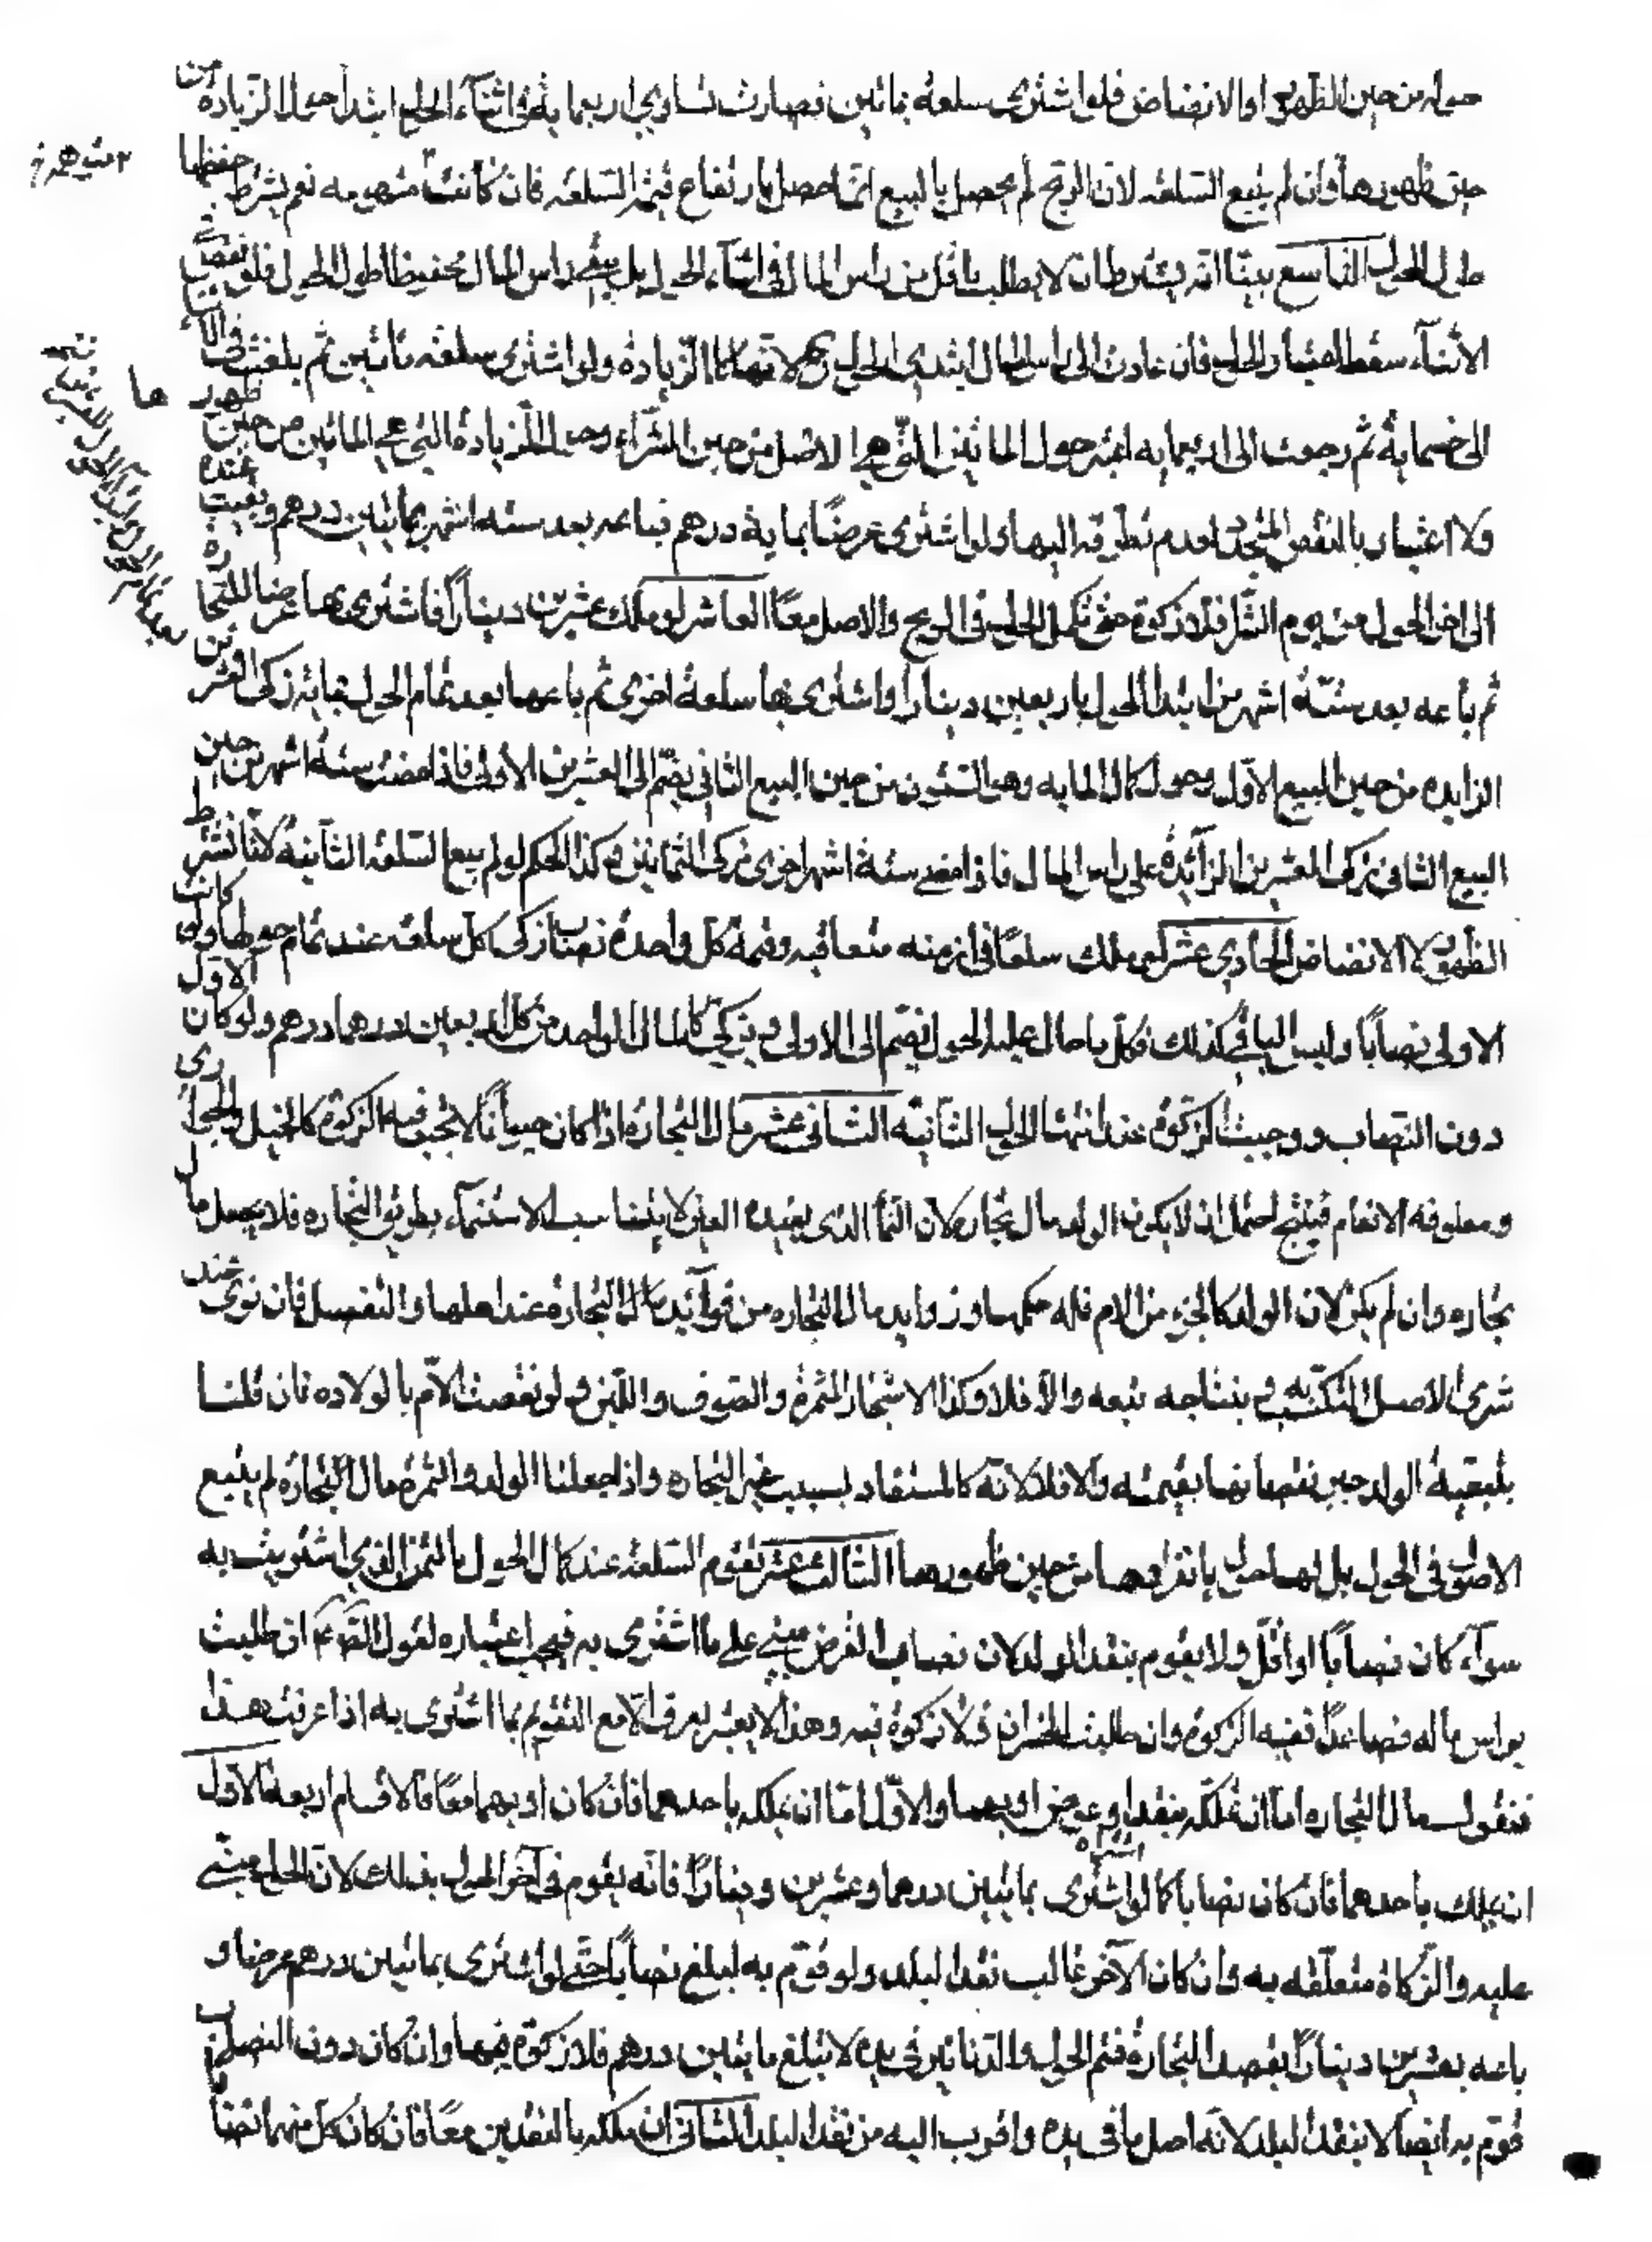 حوله من حين الظهور او الانضاض فلو اشترى سلعة بمائتين فصارت تساوي اربعمايه في اثنآء الحول ابتدأ حول الزيادة من
حين ظهورها وان لم يبع السلعه لان الربح لم يحصل بالبيع انما حصل بارتفاع قيمة السلعه فان كانت نعم يشترط حفظها
طول الحول التاسع بينّا انه يشترط ان لا يطلب باقل من راس المال في اثنآء الحول بل يبقى راس المال محفوظا طول الحول فلو نقص في
الأثنآء سقط اعتبار الحول فان عادت الى راس المال ابتدى الحول ولو اشترى سلعة بمائتين ثم بلغت في الاثنا
الى خمسماية ثم رجعت الى اربعمايه اعتبر حول المائتين التي هي الاصل من حين الشراء وحول الزيادة التي هي المائتين من حين ظهورها
ولا اعتبار بالنقص المتجدد لعدم تطرقه اليها ولو اشترى عرضًا بماية درهم فباعه بعد سته اشهر بمائتين درهم وبقيت عنده
الى اخر الحول من يوم الشرا فلا زكوة حتى تكمل الحول في الربح والاصل معًا العاشر لو ملك عشرين دينارًا فاشترى بها عرضا للتجارة
ثم باعه بعد ستّة اشهر من ابتدأ الحول باربعين دينارا واشترى بها سلعة اخرى ثم باعها بعد تمام الحول بماية زكى العشرين
الزايده من حين البيع الاول وحول كمال المايه وهي الستون من حين البيع الثاني يضمّ الى العشرين الأولى فاذا مضت ستة اشهر من حين
البيع الثاني زكى العشرين الزآئدة على راس المال فاذا مضى ستة اشهر اخرى زكى الثمانين وكذا الحكم لو لم يبع السلعة الثانية لانا نشترط
الظهور لا الانضاض الحادي عشر لو ملك سلعًا في ازمنه متعاقبه وقيمة كل واحدة نصاب زكى كل سلعه عند تمام حولها ولو كانت
الاولى نصابًا وليس الباقي كذلك فكل ما حال عليه الحول ضم الى الاولى ويزكي كالمال الواحد من كل اربعين درهما درهم ولو كان الاول
دون النصاب ووجبت الزكوة عند انتهآ الحول الثانية الثاني عشر مال التجارة اذا كان حيوانًا لا تجب فيه الزكوة كالخيل والجواري
ومعلوفه الانعام فينتج احتمل ان لا يكون الولد مال تجاره لان النمآ الذي يفيده العين لا يناسب الاستنمآء بطريق التجاره فلا يجعل مال
تجاره وان لم يكن لان الولد كالجزء من الام فله حكمها وزوايد مال التجاره من فوآئد مال التجارة عند اهلها والتفصيل فان نوى عند
شرى الاصل التكسّب به وبنتاجه تبعه والّا فلا وكذا الاشجار المثمرة والصوف واللبن ولو نقصت الامّ بالولاده فان قلنا
بتبعية الولد جبر نقصانها بقيمته والا فلا لانّه كالمستفاد بسبب غير التجاره واذا جعلنا الولد والثمرة مال التجارة لم يتبع
الاصول في الحول بل لها حول بانفرادها من حين ظهورها الثالث عشر تقوم السلعة عند كمال الحول بالثمن الذي اشتريت به
سوآء كان نصاباً او اقلّ ولا يقوم بنقد البلد لان نصاب العرض مبني على ما اشترى به فيجب اعتباره لقول الصم ان طلبت
براس ماله فصاعدًا ففيه الزكوة وان طلبت بالخسران فلا زكوة فيه وهذا لا يعتبر يعرف الّا مع التقويم بما اشترى به اذا عرفت هذا
فنقول مال التجاره اما ان يملكه بنقد او عرض او بهما والاوّل امّا ان يملكه باحدهما او بهما معًا فالاقسام اربعة الأول
ان يملك باحدهما فان كان نصابا كما لو اشترى بمائتين درهما وعشرين دينارًا فانّه يقوم في آخر الحول بذلك لانّ الحول مبني
عليه والزّكاة متعلّقه به وان كان الآخر غالب نقد البلد ولو قوّم به لبلغ نصابًا حتّى لو اشترى بمائتين درهم عرضا و
باعه بعشرين دينارًا بقصد التجارة فتم الحول والدنانير في يده لا تبلغ مايتين درهم فلا زكوة فيها وان كان دون النصاب
قوّم به ايضا لا بنقد البلد لانّه اصل ما في يده واقرب اليه من نقد البلد الثاني ان يملكه بالنقدين معًا فان كان كل منهما نصابا